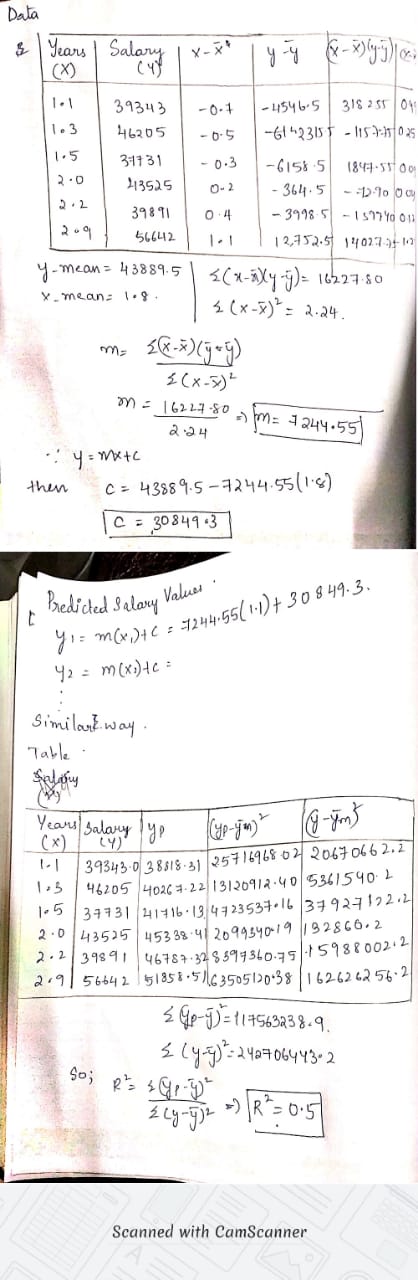 Data
Years (X) | Salary (Y) | x-x̄ | y-ȳ | (x-x̄)(y-ȳ)
1.1 39343 -0.7 -4546.5 3182.55
1.3 46205 -0.5
1.5 37731 -0.3 -6158.5 1847.55
2.0 43525 0.2 -364.5 -72.90
2.2 39891 0.4 -3998.5
2.9 56642 1.1 12,752.5
y-mean = 43889.5 | Σ(x-x̄)(y-ȳ) = 16227.80
x-mean = 1.8. | Σ(x-x̄)² = 2.24.
m = Σ(x-x̄)(y-ȳ)
Σ(x-x̄)²
m = 16227.80 ⇒ m = 7244.55
2.24
∵ y = mx+c
then c = 43889.5-7244.55(1.8)
C = 30849.3
Predicted Salary Values.
y₁ = m(x₁)+c = 7244.55(1.1)+30849.3.
y₂ = m(x₂)+c =
Similar way.
Table
Years (x) | Salary (Y) | yp | (yp-ȳm)² | (y-ȳm)²
1.1 39343.0 38818.31 25716968.02 20670662.2
1.3 46205 40267.22 13120912.40 5361540.2
1.5 37731 41716.13 4723537.16 37927122.2
2.0 43525 45338.41 2099340.19 132860.2
2.2 39891 46787.32 8397360.75 15988002.2
2.9 56642 51858.51 63505120.38 162626256.2
Σ(yp-ȳ)² = 117563238.9.
Σ(y-ȳ)² = 242706443.2
So; R² = Σ(yp-ȳ)²
Σ(y-ȳ)² ⇒ R² = 0.5
Scanned with CamScanner